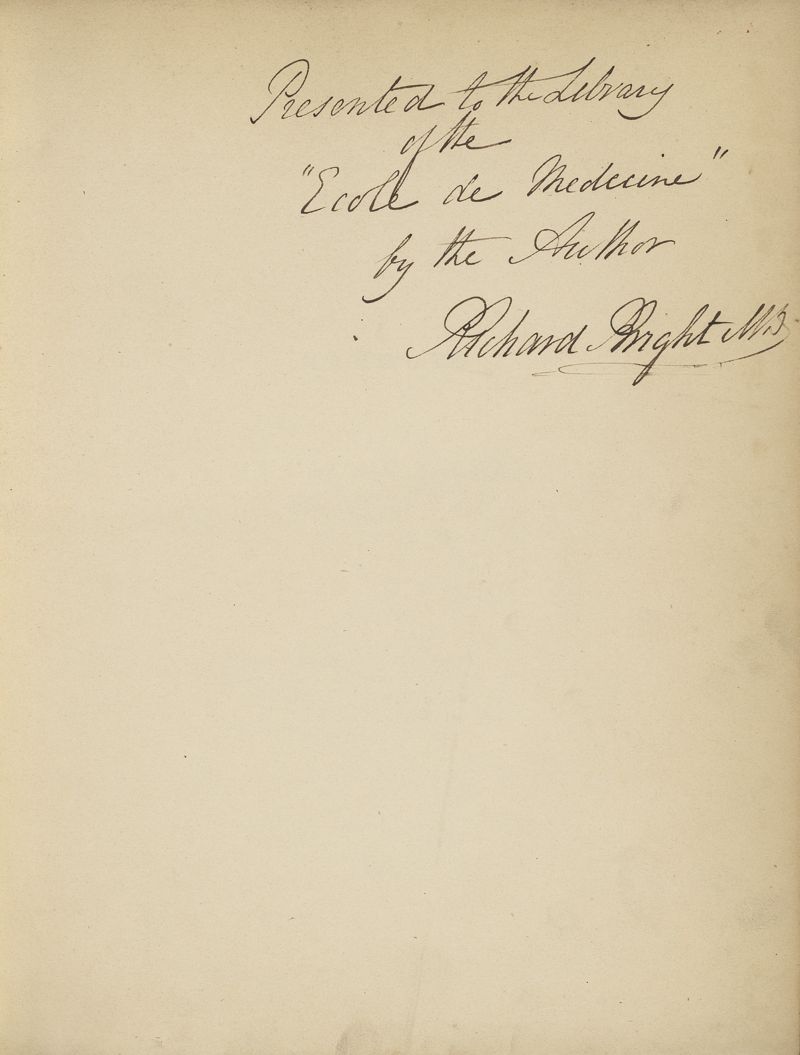 Presented to the Library
of the
"Ecole de Medecine"
by the Author
Richard Bright M.D